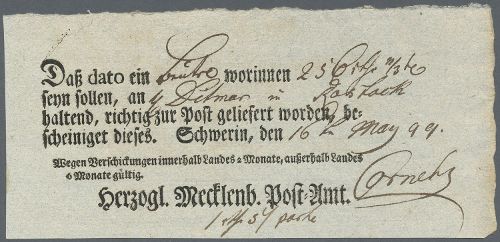 Daß dato ein worinnen 25
seyn sollen, an Ditmar in Rostock
haltend, richtig zur Post geliefert worden, be-
scheiniget dieses. Schwerin, den 16 May 99.
Wegen Verschickungen innerhalb Landes 2 Monate, außerhalb Landes
6 Monate gültig.
Herzogl. Mecklenb. Post-Amt.